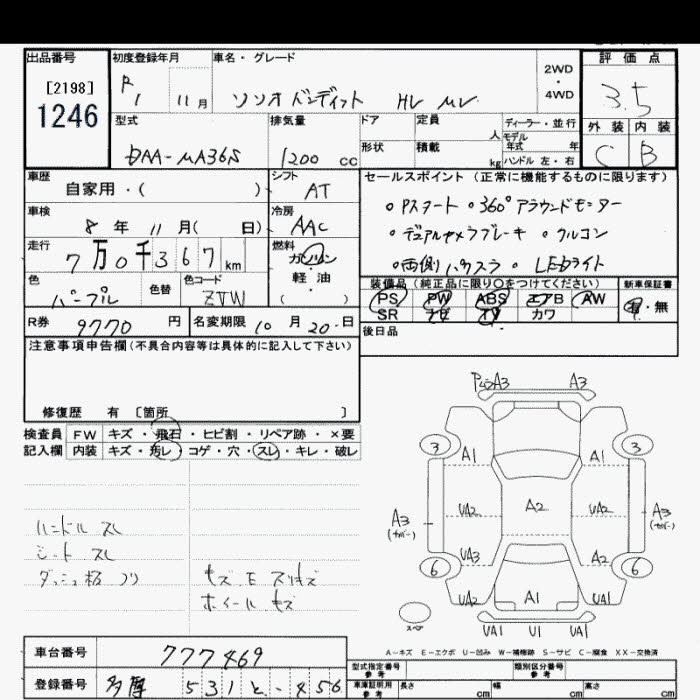 出品番号
[2198]
1246
初度登録年月
R1 11月
車名・グレード
ソリオ バンディット HV MV
2WD
・
4WD
評価点
3.5
外装 内装
C B
型式
DAA-MA36S
排気量
1200 cc
ドア
形状
定員
人
積載
kg
ディーラー・並行
モデル
年式 年
ハンドル 左・右
車歴
自家用・( )
シフト
AT
車検
8年 11月( 日)
冷房
AAC
走行
7万0千367km
燃料
ガソリン
軽・油
( )
色
パープル
色替
色コード
ZVW
R券
9770円
名変期限 10月20日
セールスポイント(正常に機能するものに限ります)
○Pスタート ○360°アラウンドモニター
・デュアルカメラブレーキ ・クルコン
○両側パワスラ ○LEDライト
装備品(純正品に限り○をつけてください)
PS PW ABS エアB AW
SR ナビ TV カワ
新車保証書
有・無
後日品
注意事項申告欄(不具合内容等は具体的に記入して下さい)
修復歴 有 [箇所 ]
検査員 FW キズ・飛石・ヒビ割・リペア跡・×要
記入欄 内装 キズ・汚レ・コゲ・穴・スレ・キレ・破レ
ハンドル スレ
シート スレ
ダッシュ板 ノリ
キズ E スリキズ
ホイール キズ
A3 A3
3 3
A1 A1
UA2 A2 UA2
A3 A3
UA3 A2
6 6
UA2 A1 UA2
スペア
UA1 U1 UA1
A-キズ E-エクボ U-凹み W-補修跡 S-サビ C-腐食 XX-交換済
車台番号 777469
登録番号 多摩 531 と -456
型式指定番号
参考
類別区分番号
参考
車庫証明用
参考
長さ cm 幅 cm 高さ cm